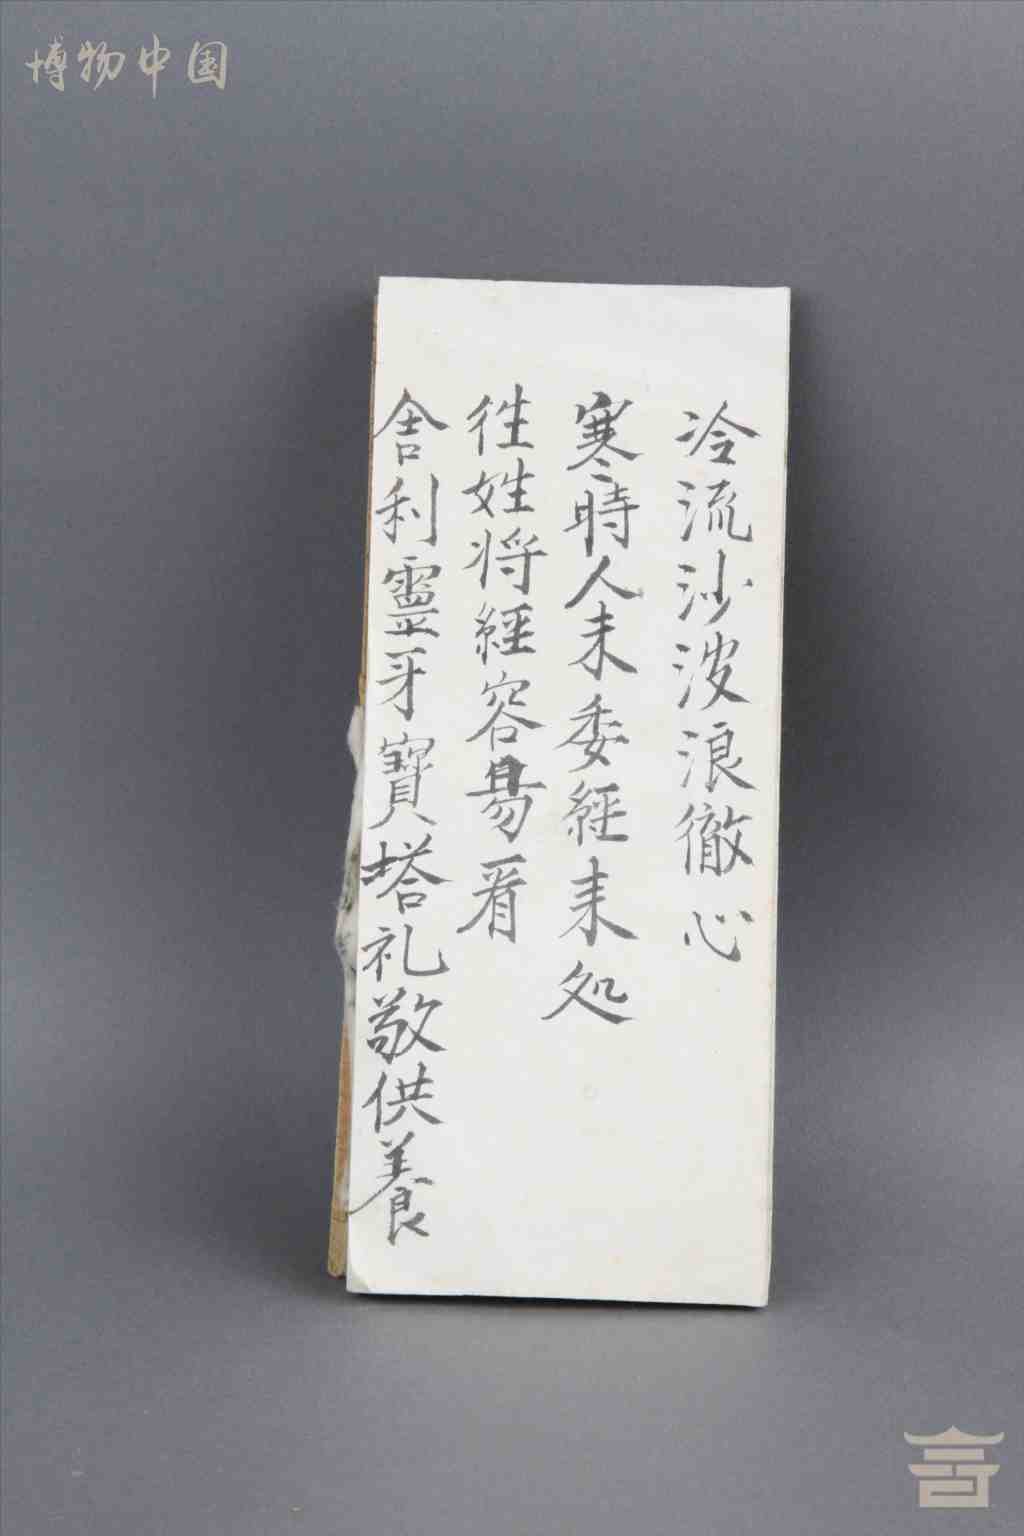 博物中国
冷流沙波浪徹心
寒時人未委經来处
往姓将經容易看
舍利靈牙寶塔礼敬供養